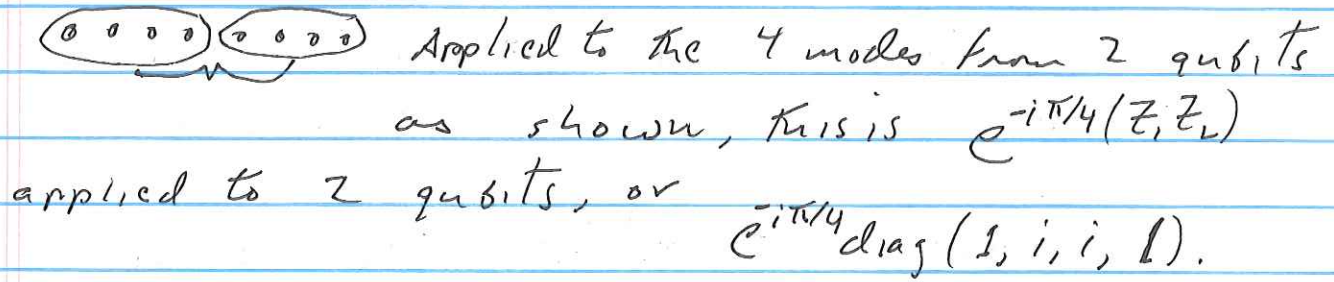 Applied to the 4 modes from 2 qubits
as shown, this is e^{-iπ/4(Z₁Z₂)}
applied to 2 qubits, or
e^{-iπ/4} diag(1, i, i, 1).